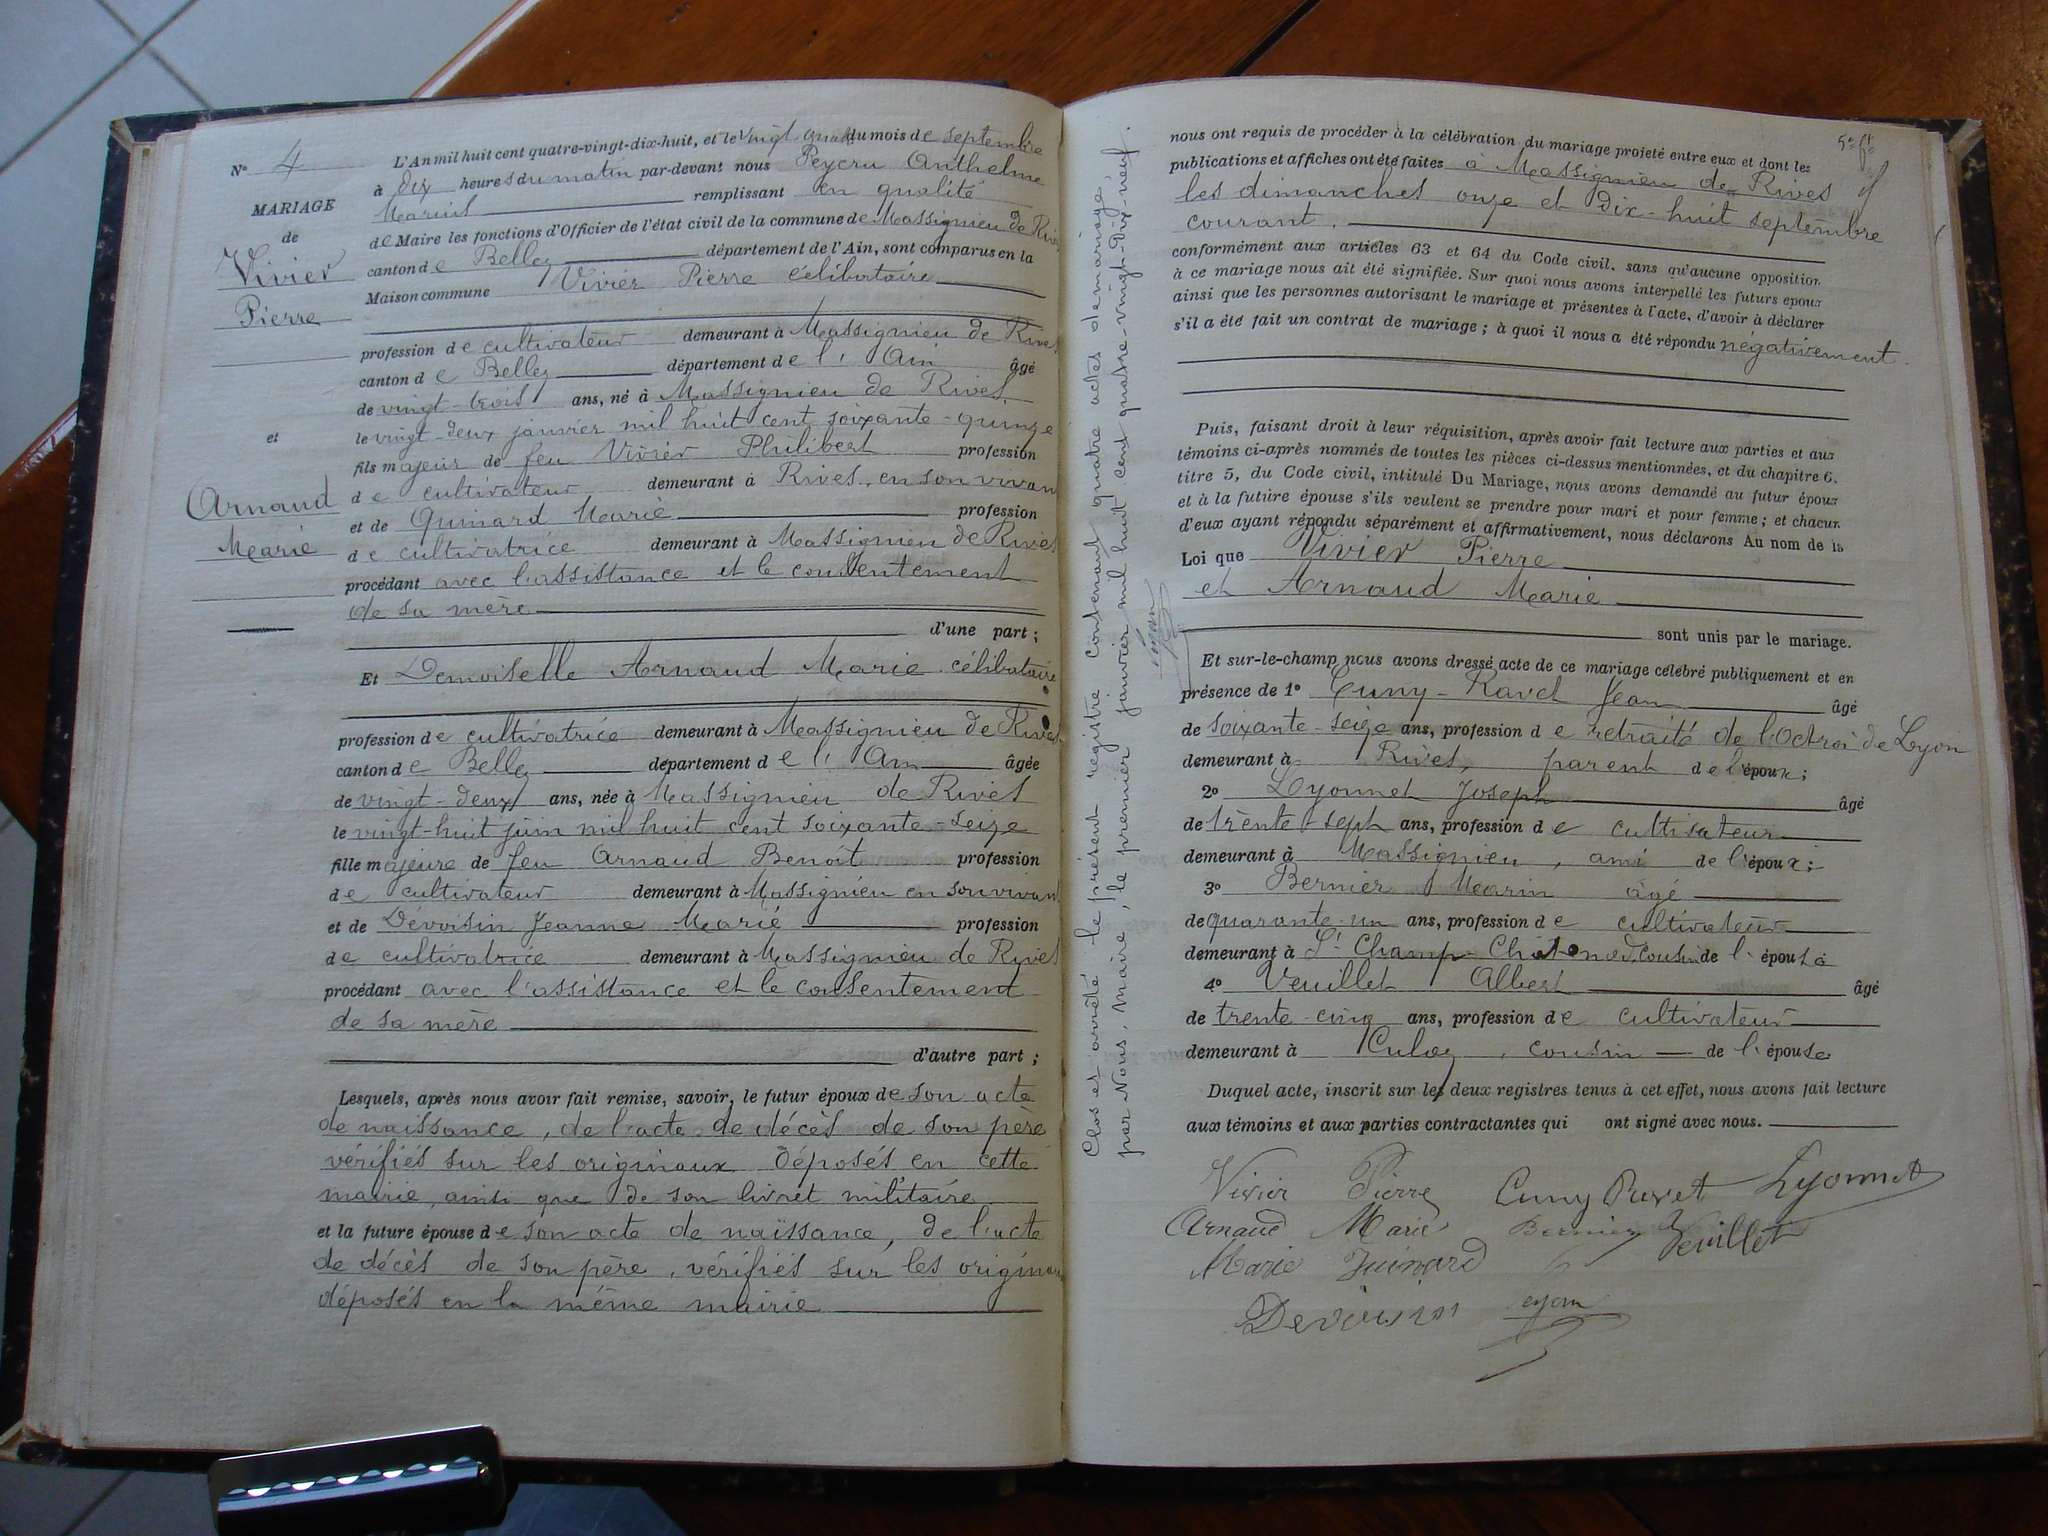 N° 4
MARIAGE
de
Vivier
Pierre
et
Arnaud
Marie
L'An mil huit cent quatre-vingt-dix-huit, et le vingt quatre du mois de septembre
à dix heures du matin par-devant nous Peycru Anthelme
Marius remplissant en qualité
de Maire les fonctions d'Officier de l'état civil de la commune de Massignieu de Rives
canton de Belley département de l'Ain, sont comparus en la
Maison commune Vivier Pierre célibataire
profession de cultivateur demeurant à Massignieu de Rives
canton de Belley département de l'Ain âgé
de vingt-trois ans, né à Massignieu de Rives
le vingt-deux janvier mil huit cent soixante-quinze
fils majeur de feu Vivier Philibert profession
de cultivateur demeurant à Rives, en son vivant
et de Guinard Marie profession
de cultivatrice demeurant à Massignieu de Rives
procédant avec l'assistance et le consentement
de sa mère
d'une part ;
Et Demoiselle Arnaud Marie célibataire
profession de cultivatrice demeurant à Massignieu de Rives
canton de Belley département de l'Ain âgée
de vingt-deux ans, née à Massignieu de Rives
le vingt-huit juin mil huit cent soixante-seize
fille majeure de feu Arnaud Benoît profession
de cultivateur demeurant à Massignieu en son vivant
et de Devoisin Jeanne Marie profession
de cultivatrice demeurant à Massignieu de Rives
procédant avec l'assistance et le consentement
de sa mère
d'autre part ;
Lesquels, après nous avoir fait remise, savoir, le futur époux de son acte
de naissance, de l'acte de décès de son père
vérifiés sur les originaux déposés en cette
mairie, ainsi que de son livret militaire
et la future épouse de son acte de naissance, de l'acte
de décès de son père, vérifiés sur les originaux
déposés en la même mairie
Clos et arrêté le présent registre contenant quatre actes de mariage,
par Nous, Maire, le premier janvier mil huit cent quatre-vingt-dix-neuf.
nous ont requis de procéder à la célébration du mariage projeté entre eux et dont les
publications et affiches ont été faites à Massignieu de Rives
les dimanches onze et dix-huit septembre
courant.
conformément aux articles 63 et 64 du Code civil, sans qu'aucune opposition
à ce mariage nous ait été signifiée. Sur quoi nous avons interpellé les futurs époux
ainsi que les personnes autorisant le mariage et présentes à l'acte, d'avoir à déclarer
s'il a été fait un contrat de mariage ; à quoi il nous a été répondu négativement.
Puis, faisant droit à leur réquisition, après avoir fait lecture aux parties et aux
témoins ci-après nommés de toutes les pièces ci-dessus mentionnées, et du chapitre 6,
titre 5, du Code civil, intitulé Du Mariage, nous avons demandé au futur époux
et à la future épouse s'ils veulent se prendre pour mari et pour femme ; et chacun
d'eux ayant répondu séparément et affirmativement, nous déclarons Au nom de la
Loi que Vivier Pierre
et Arnaud Marie
sont unis par le mariage.
Et sur-le-champ nous avons dressé acte de ce mariage célébré publiquement et en
présence de 1° Cuny-Ravet Jean âgé
de soixante-seize ans, profession de retraité de l'Octroi de Lyon
demeurant à Rives, parent de l'époux ;
2° Lyonnet Joseph âgé
de trente-sept ans, profession de cultivateur
demeurant à Massignieu, ami de l'époux ;
3° Bernier Marin âgé
de quarante-un ans, profession de cultivateur
demeurant à St Champ Chatonod, cousin de l'épouse
4° Veuillet Albert âgé
de trente-cinq ans, profession de cultivateur
demeurant à Culoz, cousin de l'épouse
Duquel acte, inscrit sur les deux registres tenus à cet effet, nous avons fait lecture
aux témoins et aux parties contractantes qui ont signé avec nous.
Vivier Pierre Cuny Ravet Lyonnet
Arnaud Marie Bernier Veuillet
Marie Guinard
Devoisin